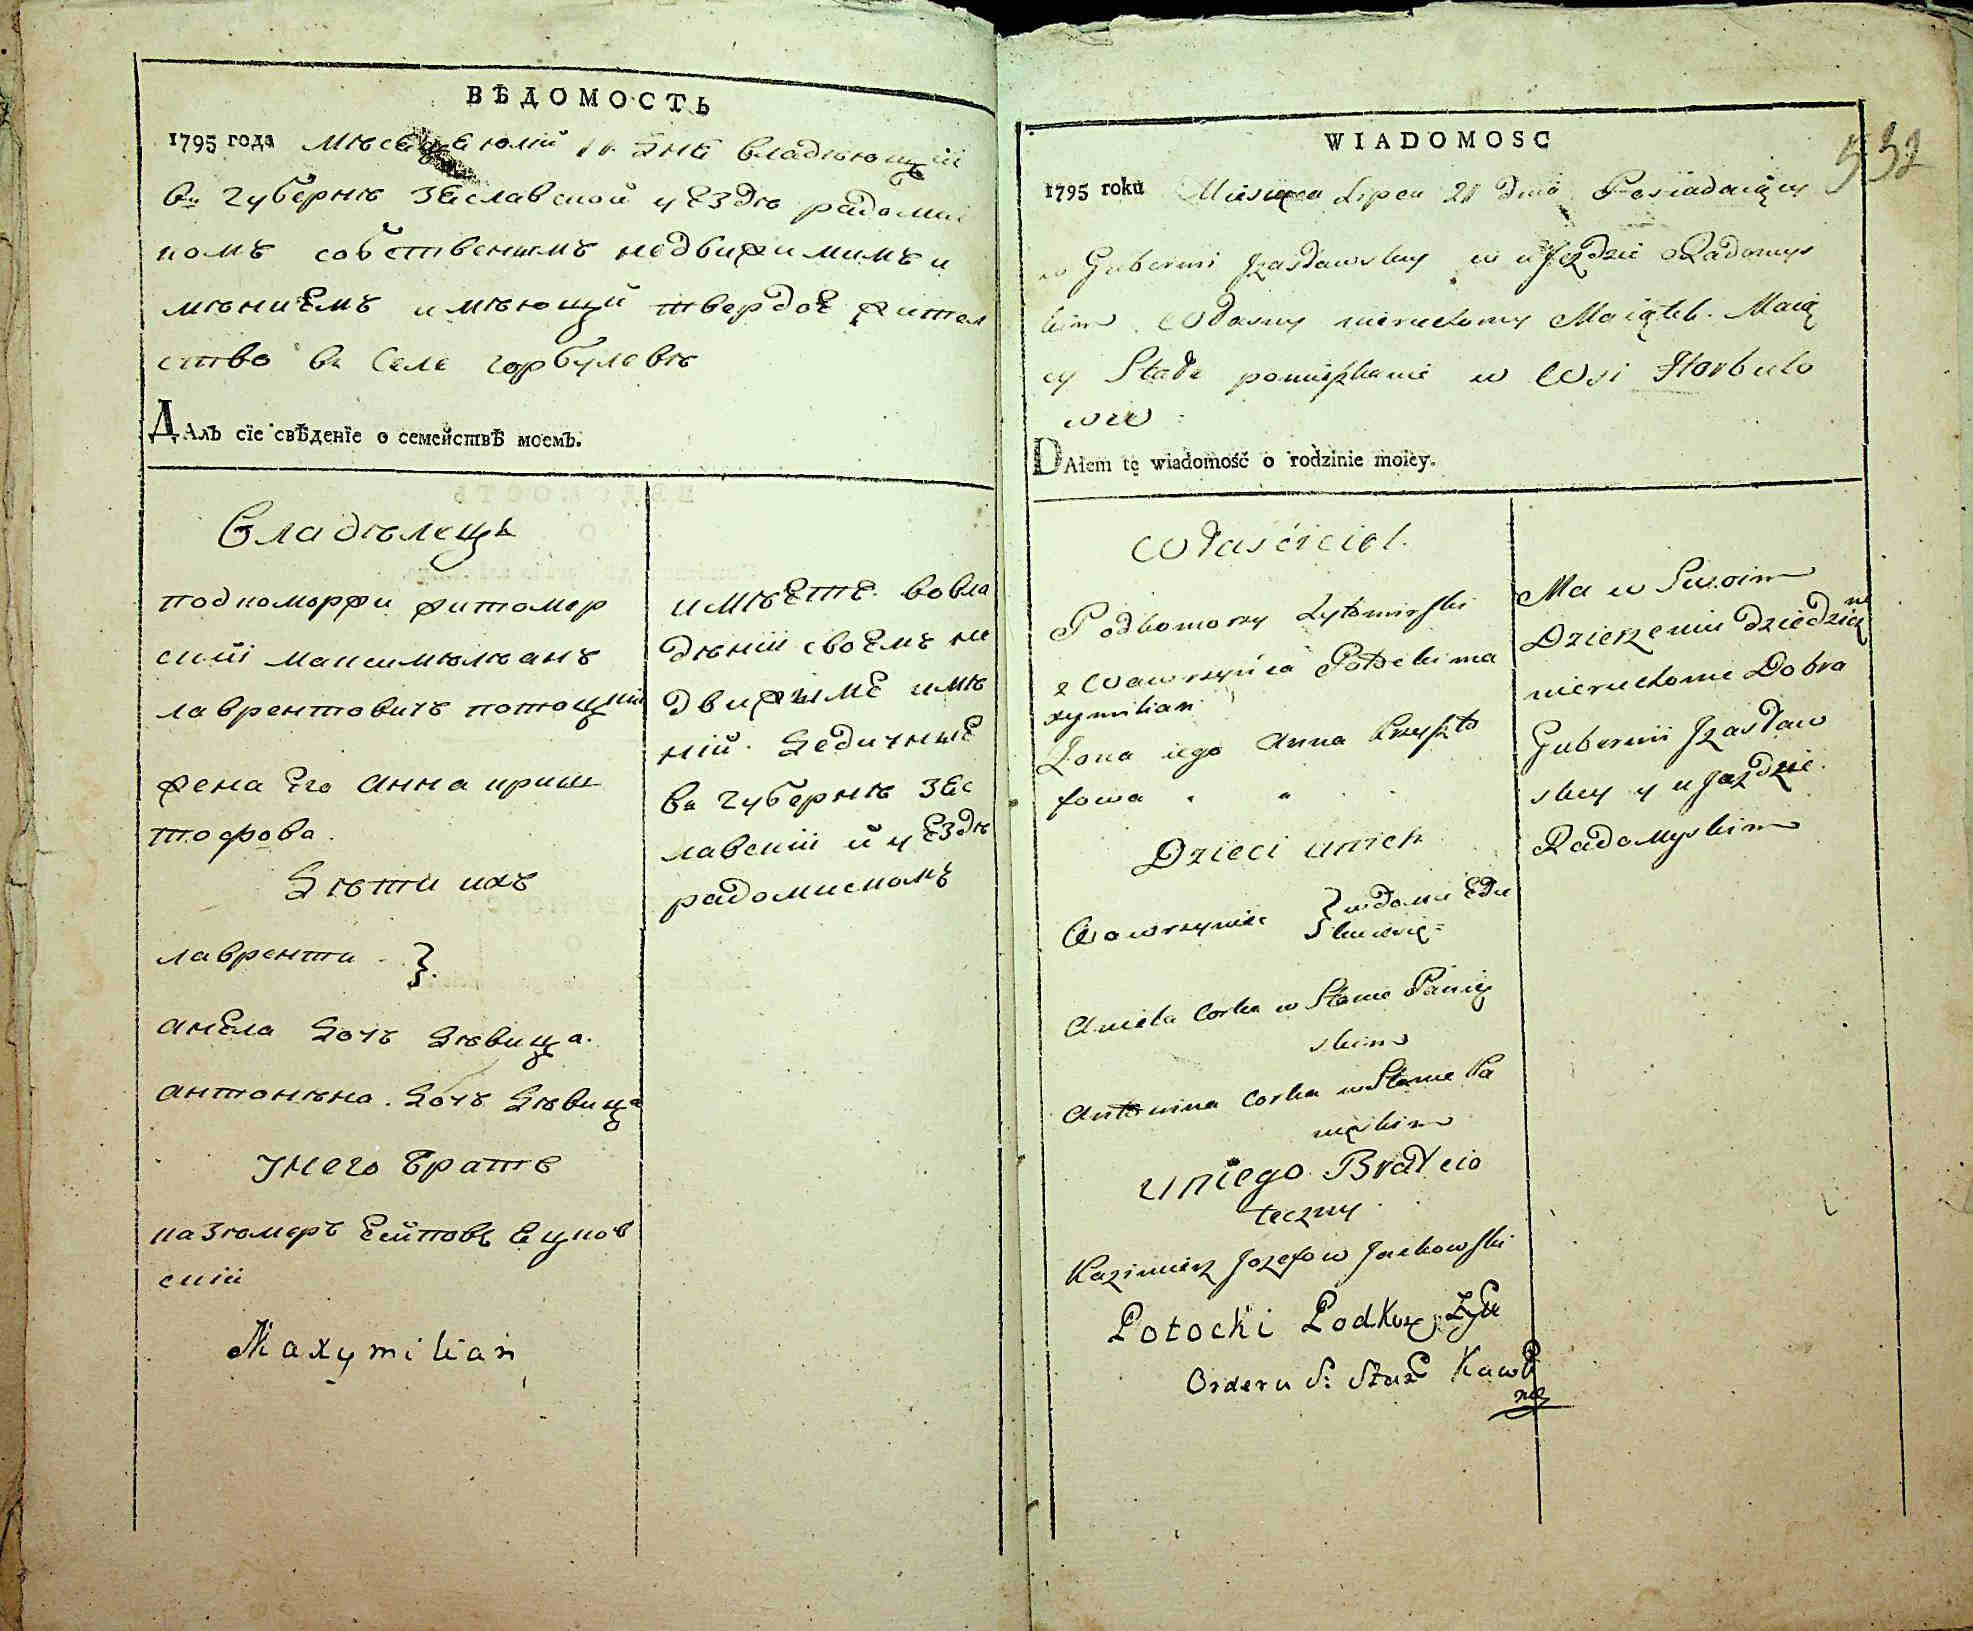 ВѢДОМОСТЬ
1795 года мѣсеца юлій дне владѣющій
въ губернѣ зеславской уездѣ радоми
комъ собственимъ недвижимимъ и
мѣниемъ имѣющій твердое жител
ство въ Селе горбулевѣ
Далъ сіе свѣденіе о семействѣ моемъ.
Владѣлецъ
подкоморжи житомер
скиі максимѣлѣанъ
лаврентовичъ потоцкиі
жена Его анна криш
тофова.
Дѣти ихъ
лаврентй
анела дочъ дѣвица.
антонѣна. дочъ дѣвица
унего братъ
казѣмеръ
скиі
имѣетъ. вовла
дѣніи своемъ не
движиме имѣ
ній. дедичние
въ губернѣ зес
лавскиі й уездѣ
радомискомъ
Maxymilian
WIADOMOSC
532
1795 roku Miesięca Lipca 21 dnia Posiadaiący
w Gubernii Izasławskey w ujezdzie Radomys
kim. Własny nieruchomy Maiątek. Maią
cy Stałe pomieszkanie w Wsi Horbulo
wie
DAłem tę wiadomość o rodzinie moiey.
Właściciel.
Podkomorzy Zytomirski
z Wawrzyńca Potocki ma
xymilian
Zona iego Anna Krzyszto
fowa
Dzieci unich
Wawrzyniec w domu
Aniela Corka w Stanie Panię
skim
Antonina Corka w Stanie Pa
nięskim
uniego Brat cio
teczny
Kazimierz Jozefow Jackowski
Potocki Podkor: Zyt
Orderu S: Stan Kawl
Ma w Swoim
Dzierzeniu dziedzicz
ne
nieruchome Dobra
Gubernii Izasław
skey y ujazdzie
Radomyskim